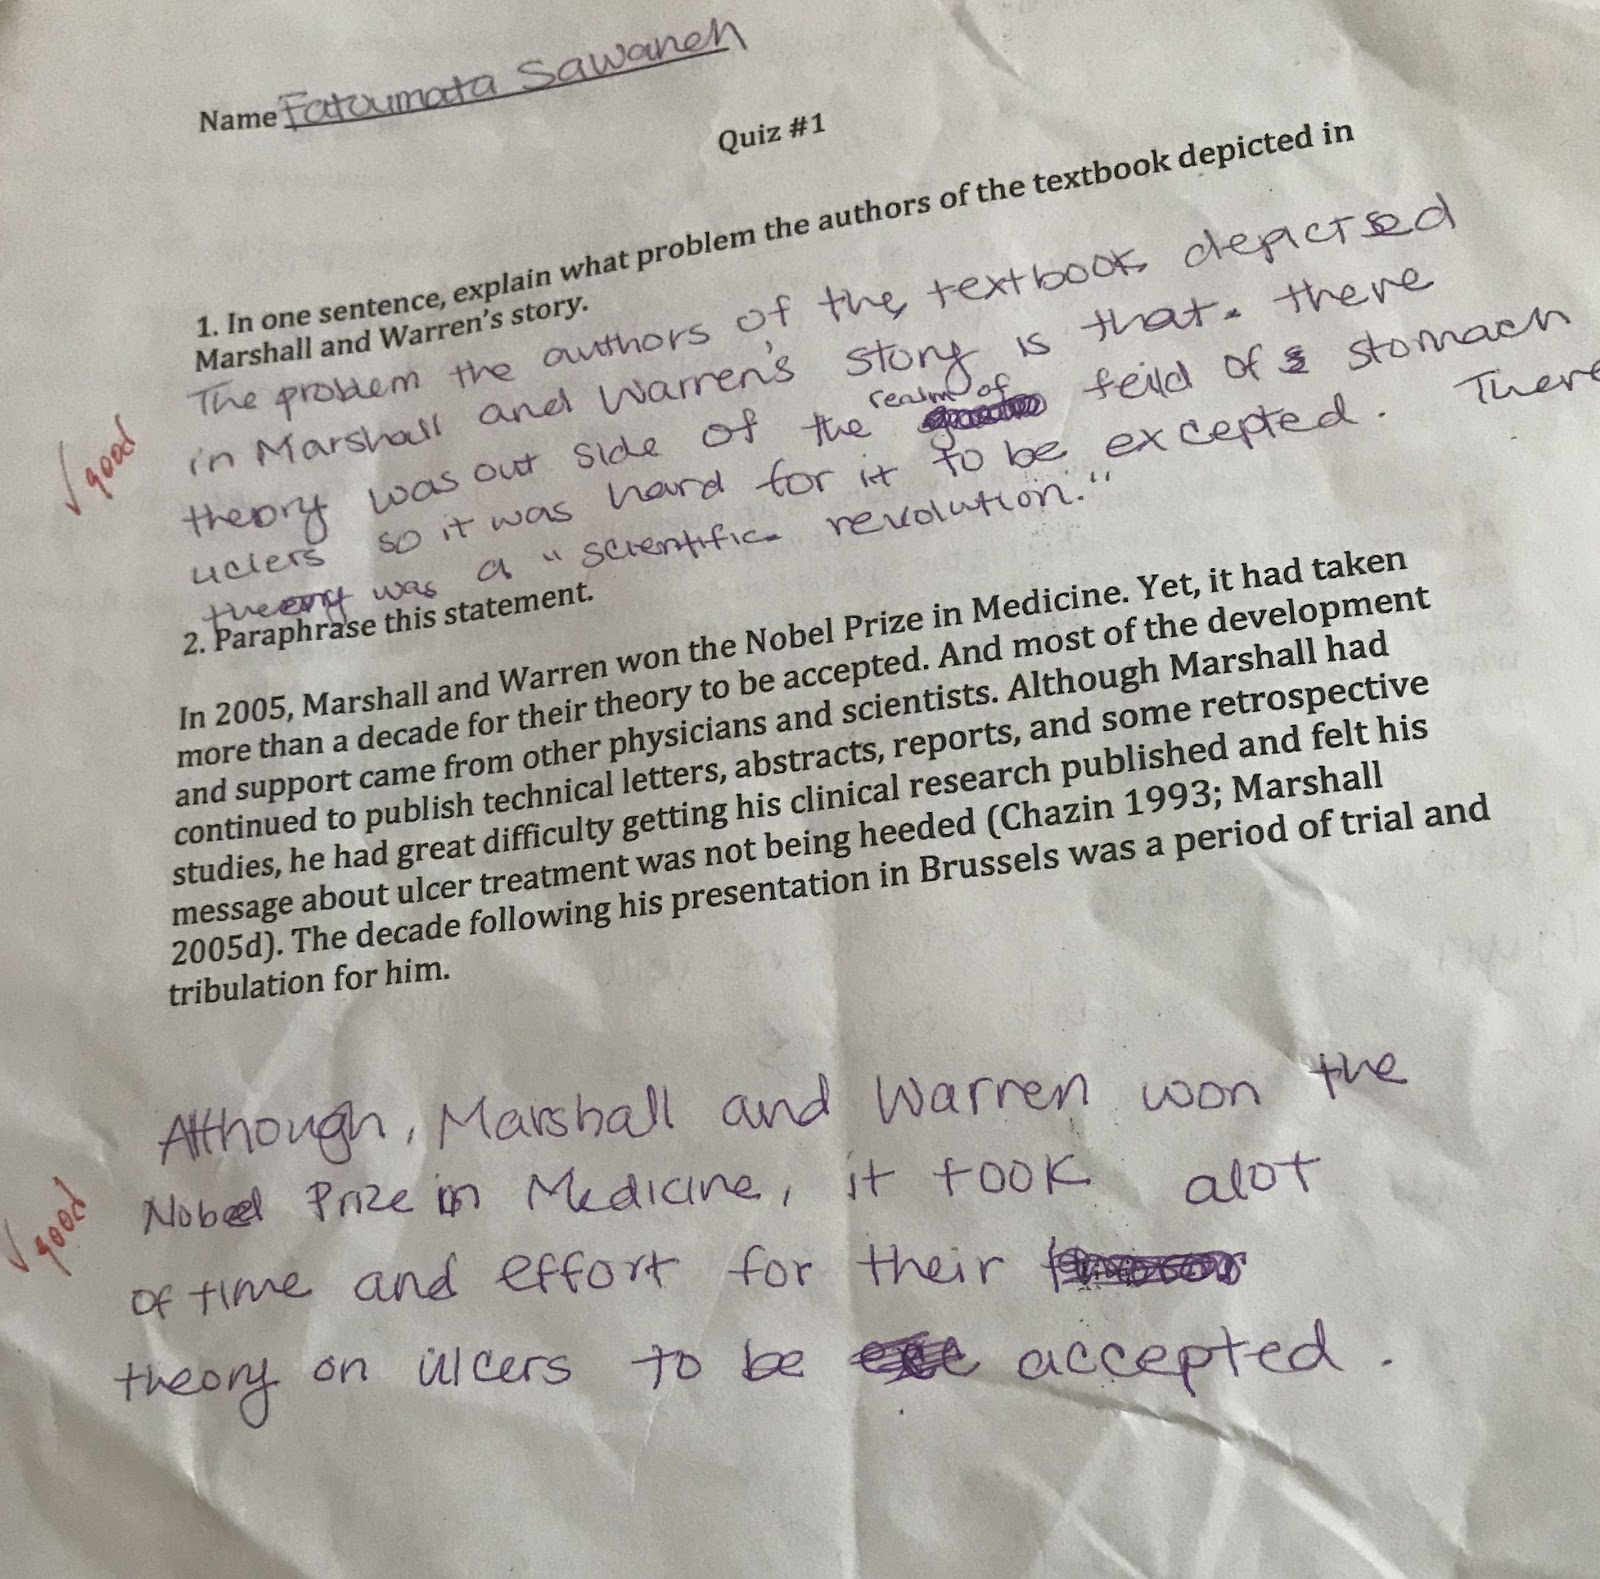 Name Fatoumata Sawaneh
Quiz #1
1. In one sentence, explain what problem the authors of the textbook depicted in
Marshall and Warren's story.
The problem the authors of the textbook depicted
in Marshall and Warren's story is that there
realm of
theory was out side of the feild of stomach
uclers so it was hard for it to be excepted. There
theory was a "scientific revolution."
√ good
2. Paraphrase this statement.
In 2005, Marshall and Warren won the Nobel Prize in Medicine. Yet, it had taken
more than a decade for their theory to be accepted. And most of the development
and support came from other physicians and scientists. Although Marshall had
continued to publish technical letters, abstracts, reports, and some retrospective
studies, he had great difficulty getting his clinical research published and felt his
message about ulcer treatment was not being heeded (Chazin 1993; Marshall
2005d). The decade following his presentation in Brussels was a period of trial and
tribulation for him.
Although, Marshall and Warren won the
Nobel Prize in Medicine, it took alot
of time and effort for their
theory on ulcers to be accepted.
√ good